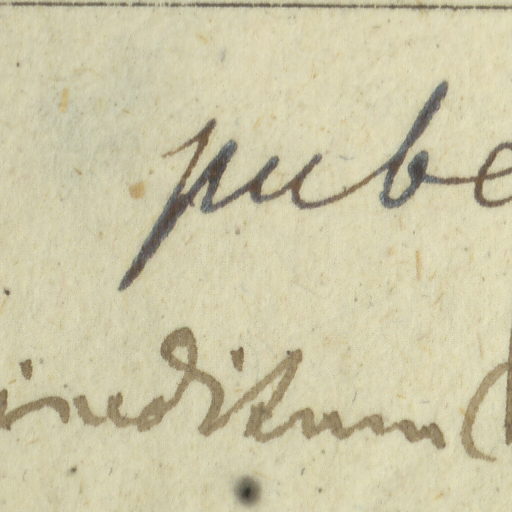 pube
ineditum (